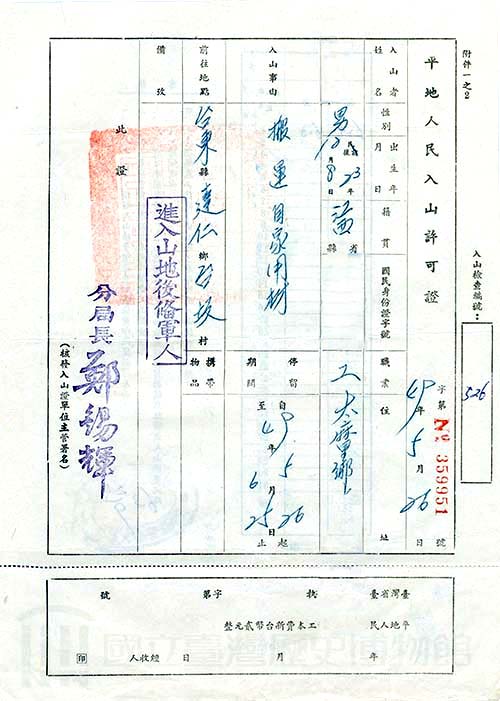 附件一之2
平地人民入山許可證
入山檢查編號：
526
字第 № 359951 號
49年5月26日
入山者姓名
性別
出生年月日
籍貫
國民身份證字號
職業
住址
男
民國前後23年
10月8日
省 縣
工
太麻里鄉
入山事由
搬運自家用材
停留期間
自49年5月26日起
至49年6月25日止
前往地點
台東縣達仁鄉 坂村
攜帶物品
備攷
進入山地後備軍人
此證
分局長 鄭錫輝
（核發入山證單位主管署名）
臺灣省臺
平地人民
執 字第 號
工本費新台幣貳元整
年 月 日 經收人 印
國立臺灣歷史博物館